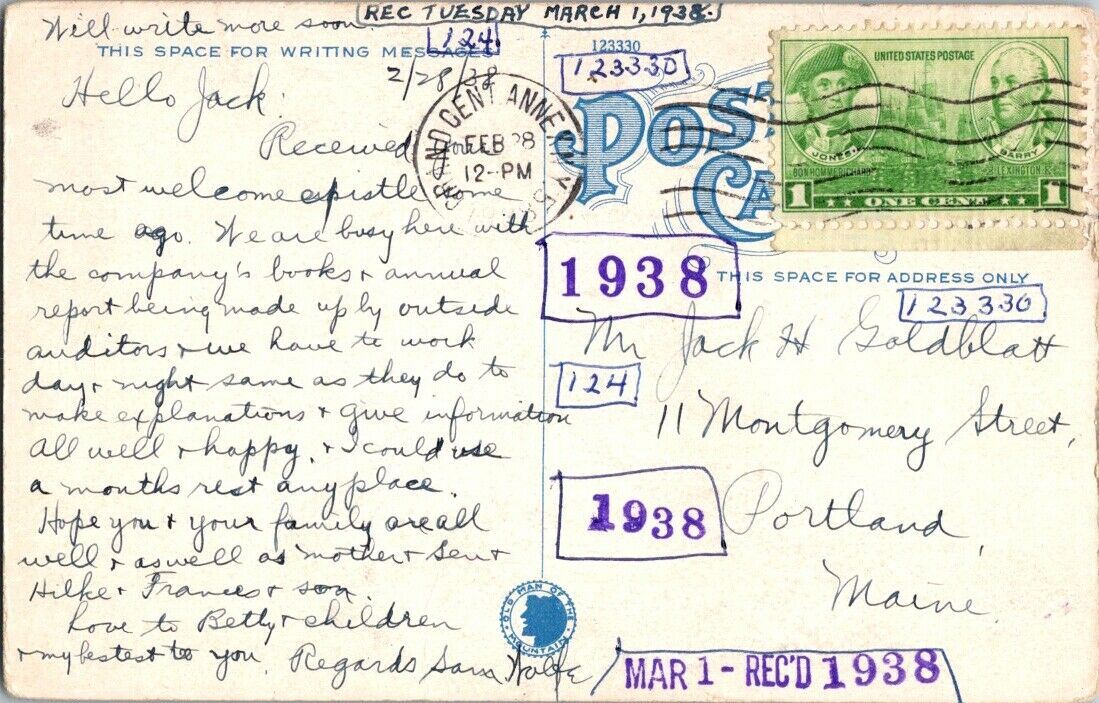 REC TUESDAY MARCH 1, 1938.
Will write more soon.
124.
THIS SPACE FOR WRITING MESSAGES
2/28/38
Hello Jack:
Received your
most welcome epistle some
time ago. We are busy here with
the company's books + annual
report being made up by outside
auditors + we have to work
day + night same as they do to
make explanations + give information
all well + happy. + I could use
a months rest any place.
Hope you + your family are all
well + as well as mother + Sen +
Hilke + Frances + son.
Love to Betty + children
+ my bestest to you. Regards Sam Wolfe
123330
123330
GRAND CENT ANNEX N.Y.
FEB 28
12-PM
POST
CA
UNITED STATES POSTAGE
JONES
BARRY
BON HOMME RICHARD
LEXINGTON
1 ONE CENT 1
1938
THIS SPACE FOR ADDRESS ONLY
123330
Mr Jack H Goldblatt
124
11 Montgomery Street,
1938
Portland,
Maine
OLD MAN OF THE MOUNTAIN
MAR 1 - REC'D 1938